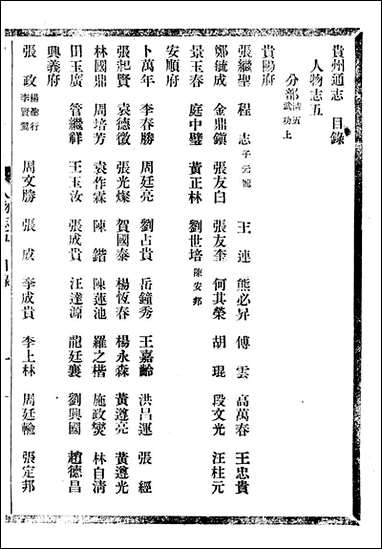 貴州通志 目錄
人物志五
分部 清五 武功上
貴陽府
張繼聖 程志 子元 王連 熊必昇 傅雲 高萬春 王忠貴
鄭毓成 金鼎鎮 張友白 張友奎 何其榮 胡琨 段文光 汪柱元
景玉春 庭中璧 黃正林 劉世培 陳安邦
安順府
卜萬年 李春勝 周廷亮 劉占貴 岳鐘秀 王嘉齡 洪呂運 張經
張起賢 袁德徵 張光燦 賀國泰 楊恆春 楊永森 黃遵亮 黃遵光
林國鼎 周培芳 袁作霖 陳鍇 陳蓮池 羅之楷 施政燮 林自清
田玉廣 管繼祥 王玉汝 張成貴 汪達源 龍廷襄 劉興國 趙德昌
興義府
張政 李賢 周文勝 張成 李成貴 李上林 周廷輪 張定邦
人物志五 目錄 一